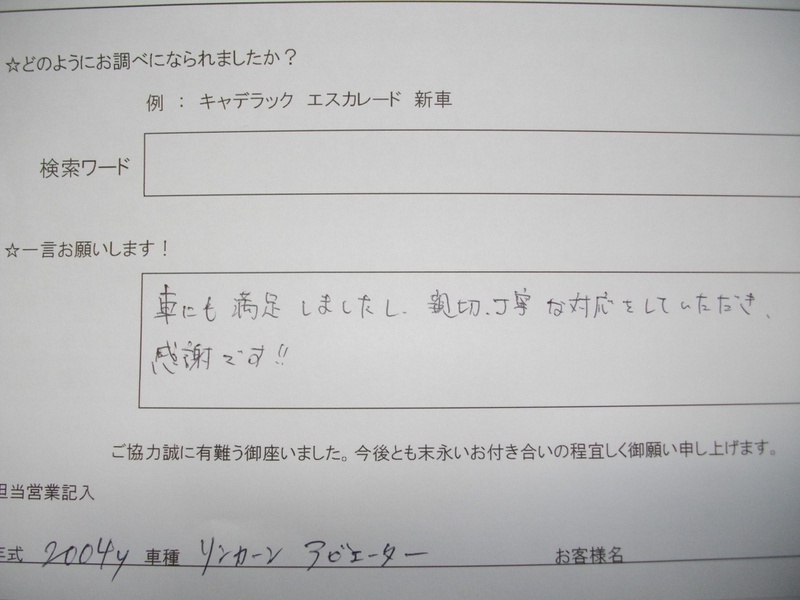 ☆どのようにお調べになられましたか？
例 ： キャデラック エスカレード 新車
検索ワード
☆一言お願いします！
車にも満足しましたし、親切、丁寧な対応をしていただき、
感謝です!!
ご協力誠に有難う御座いました。今後とも末永いお付き合いの程宜しく御願い申し上げます。
担当営業記入
年式 2004y 車種 リンカーン アビエーター お客様名